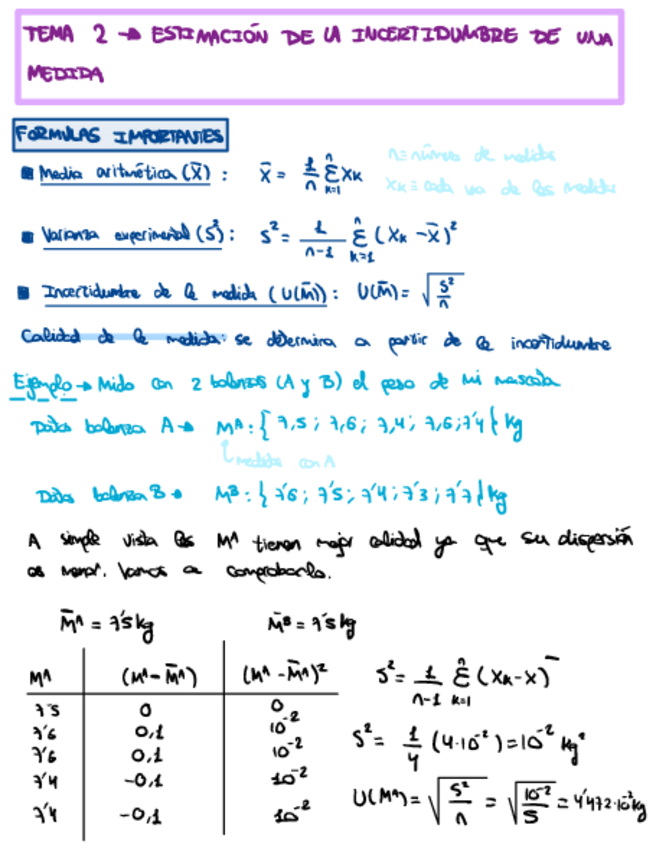 TEMA 2 → ESTIMACIÓN DE LA INCERTIDUMBRE DE UNA
MEDIDA
FORMULAS IMPORTANTES
■ Media aritmética (X̄) : X̄ = 1/n Σ(k=1 → n) Xk
n≡número de medidas
Xk≡ cada una de las medidas
■ Varianza experimental (S²): S² = 1/(n-1) Σ(k=1 → n) (Xk - X̄)²
■ Incertidumbre de la medida (U(M̄)): U(M̄) = √(S²/n)
Calidad de la medida: se determina a partir de la incertidumbre
Ejemplo → Mido con 2 balanzas (A y B) el peso de mi mascota
Datos balanza A → Mᴬ: {7,5 ; 7,6 ; 7,4 ; 7,6 ; 7'4} kg
medidas con A
Datos balanza B → Mᴮ: {7'6 ; 7'5 ; 7'4 ; 7'3 ; 7'7} kg
A simple vista las Mᴬ tienen mejor calidad ya que su dispersión
es menor. Vamos a comprobarlo.
M̄ᴬ = 7'5 kg M̄ᴮ = 7'5 kg
Mᴬ (Mᴬ - M̄ᴬ) (Mᴬ - M̄ᴬ)²
7'5 0 0
7'6 0,1 10⁻²
7'6 0,1 10⁻²
7'4 -0,1 10⁻²
7'4 -0,1 10⁻²
S² = 1/(n-1) Σ(k=1 → n) (Xk - X)‾
S² = 1/4 (4·10⁻²) = 10⁻² kg²
U(Mᴬ) = √(S²/n) = √(10⁻²/5) = 4'472·10⁻² kg